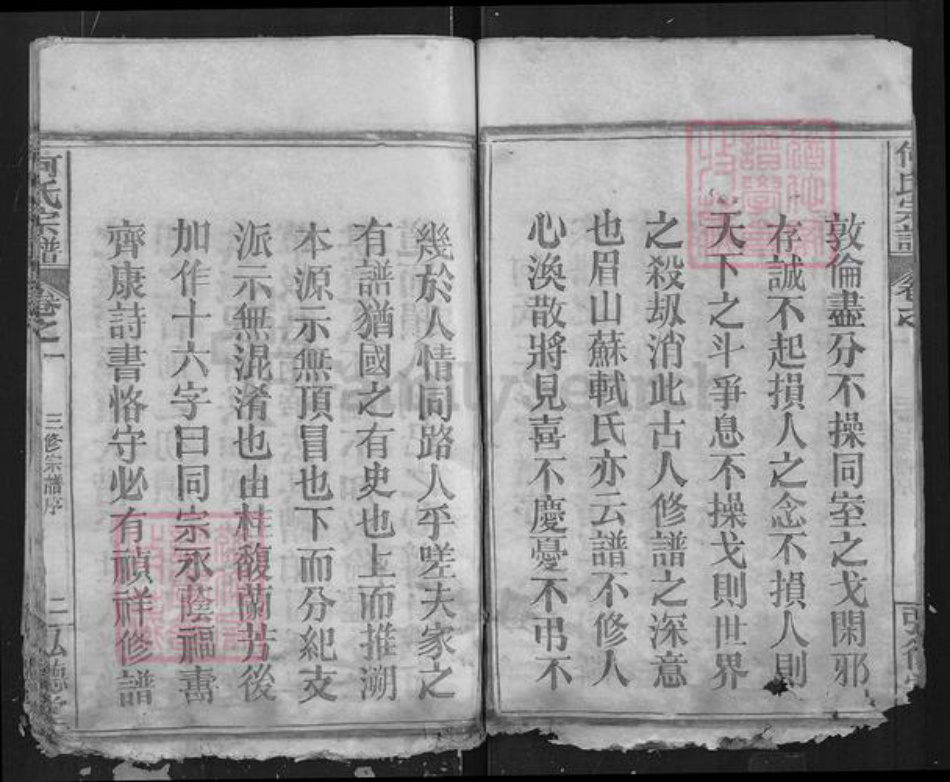 敦倫盡分不操同室之戈閑邪
存誠不起損人之念不損人則
天下之斗爭息不操戈則世界
之殺刼消此古人修譜之深意
也眉山蘇軾氏亦云譜不修人
心渙散將見喜不慶憂不弔不
幾於人情同路人乎嗟夫家之
有譜猶國之有史也上而推溯
本源示無頂冒也下而分紀支
派示無混淆也由桂馥蘭芳後
加作十六字曰同宗永蔭福壽
齊康詩書恪守必有禎祥修譜
何氏宗譜
卷之一
三修宗譜序
二
弘德堂
何氏宗譜
卷之
FamilySearch